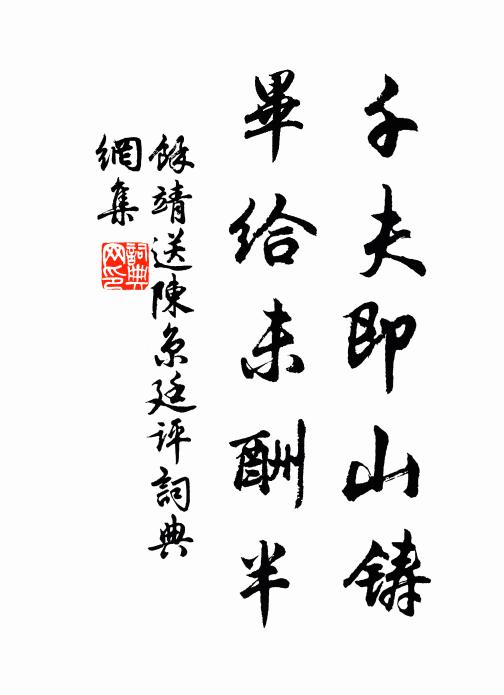 千夫即山鑄
畢給未酬半
餘靖送陳京廷評詞典
網集
詞典
网印